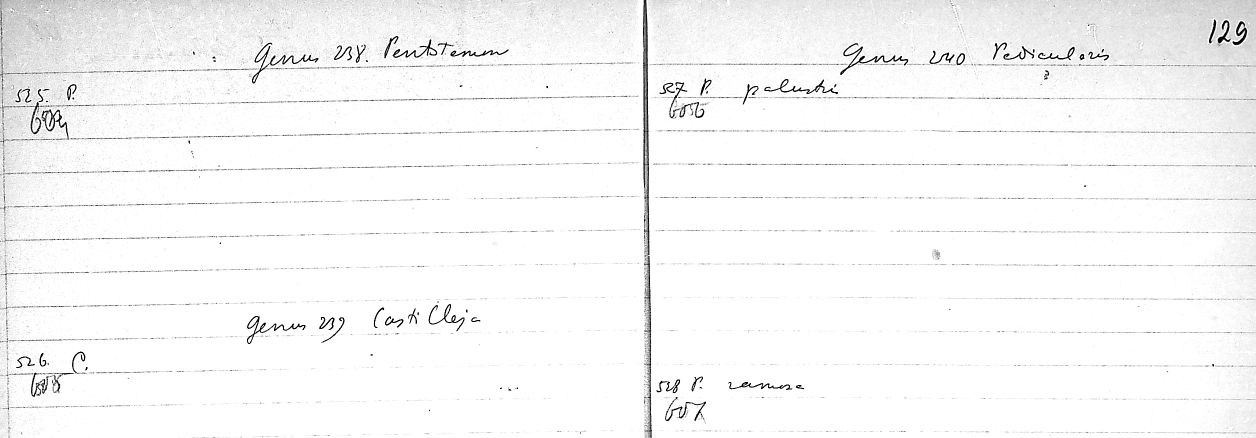 Genus 238. Pentstemon
525. P.
604
Genus 239 Castilleja
526. C.
605
129
Genus 240 Pedicularis
?
527 P. palustris
606
528 P. ramosa
607